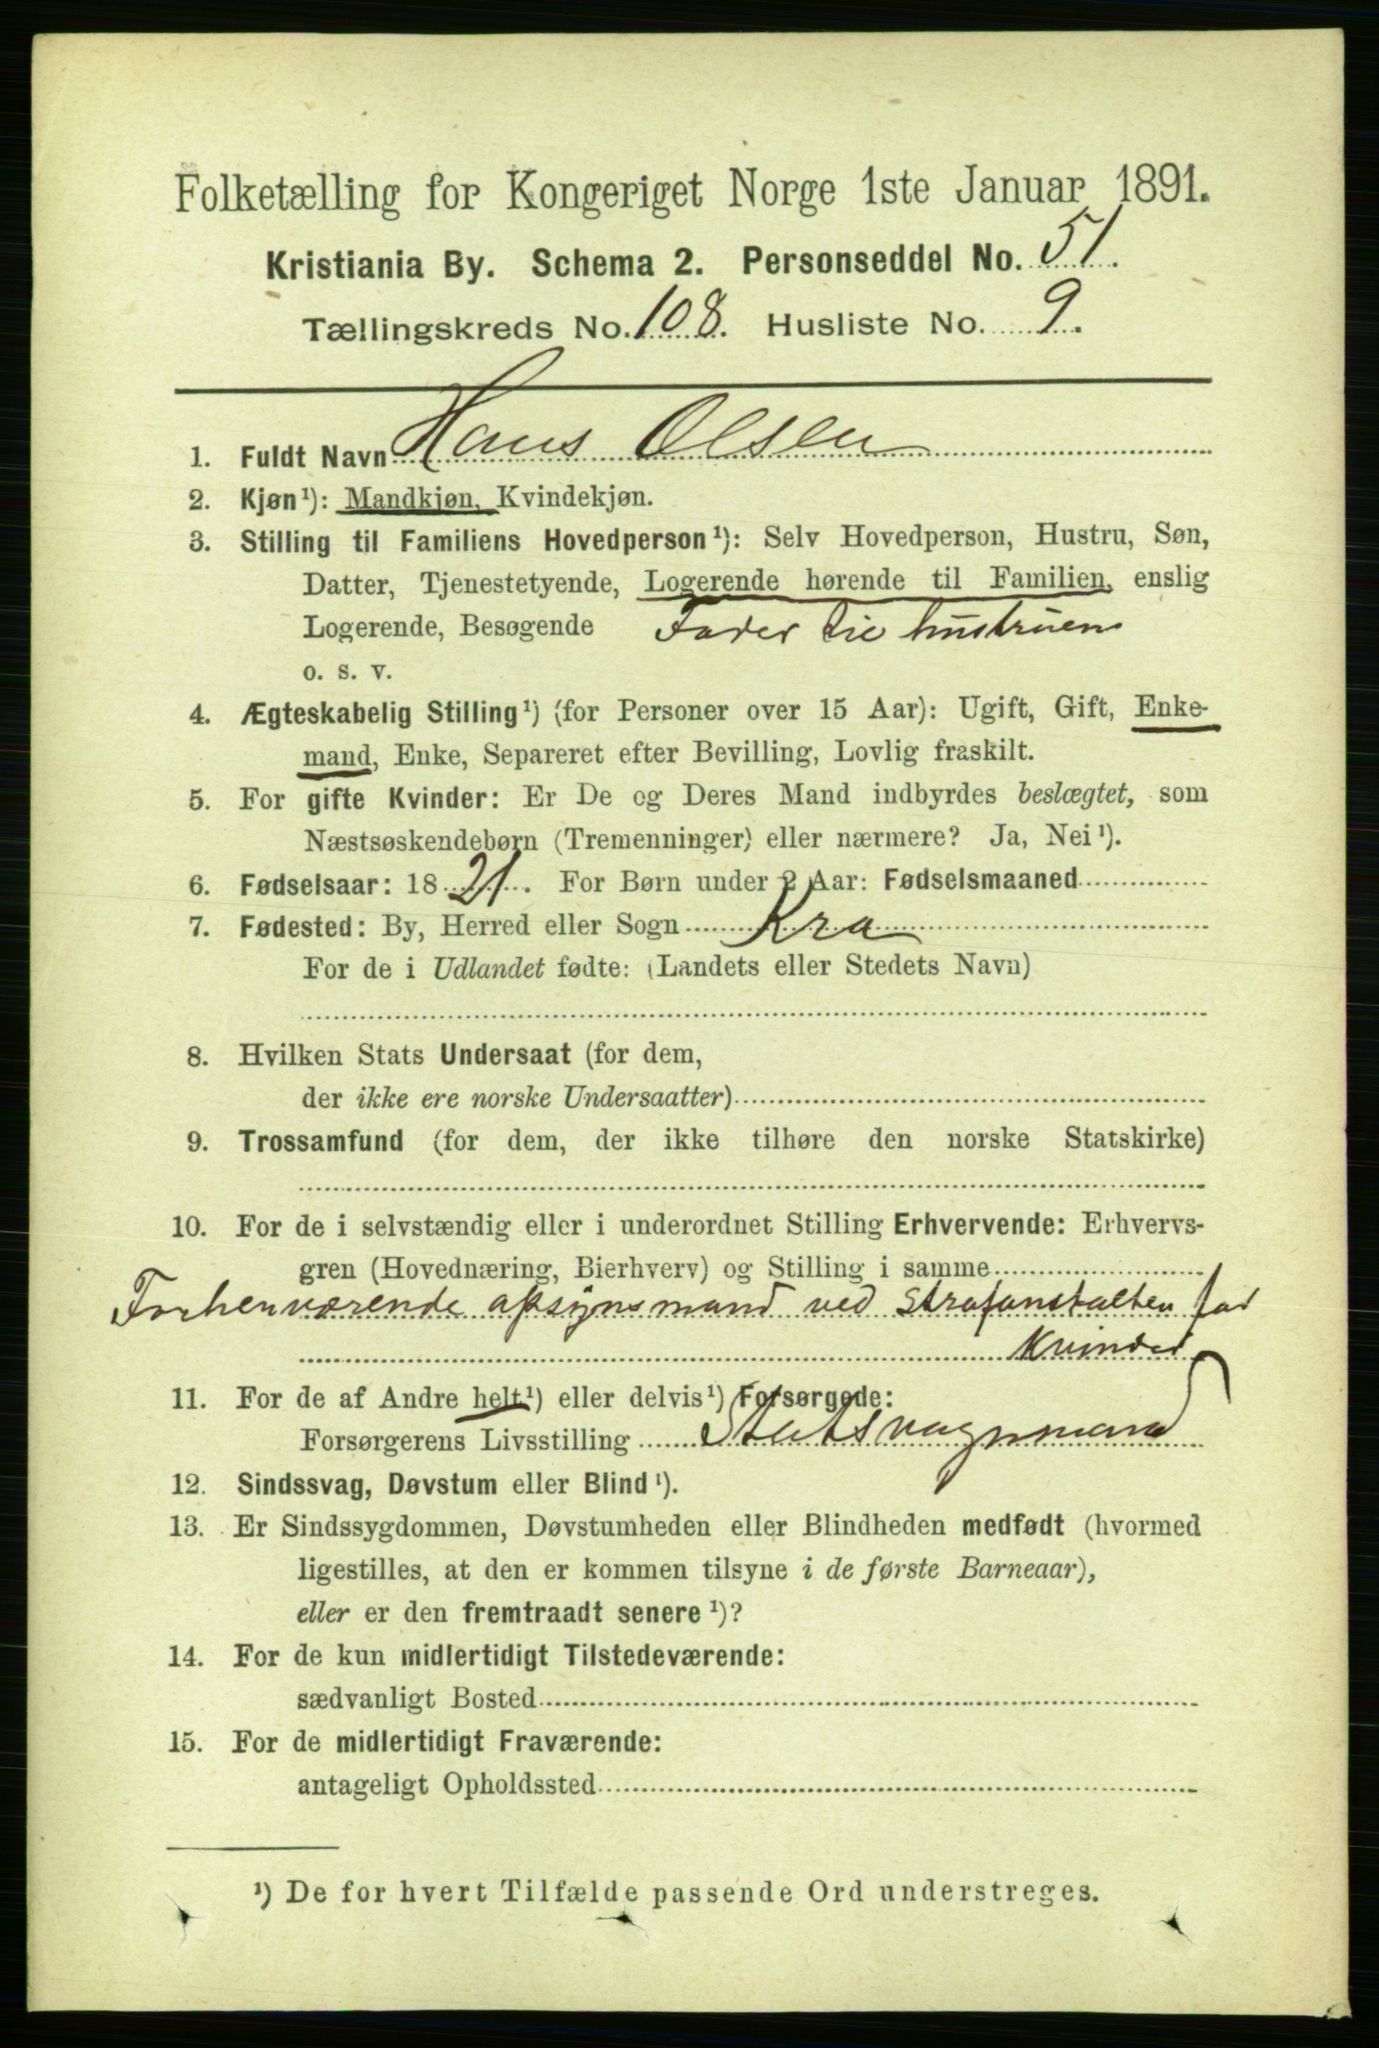 Folketælling for Kongeriget Norge 1ste Januar 1891.
Kristiania By. Schema 2. Personseddel No. 51.
Tællingskreds No. 108. Husliste No. 9.
1. Fuldt Navn Hans Olsen
2. Kjøn¹): Mandkjøn, Kvindekjøn.
3. Stilling til Familiens Hovedperson¹): Selv Hovedperson, Hustru, Søn,
Datter, Tjenestetyende, Logerende hørende til Familien, enslig
Logerende, Besøgende Fader til hustruen
o. s. v.
4. Ægteskabelig Stilling¹) (for Personer over 15 Aar): Ugift, Gift, Enke-
mand, Enke, Separeret efter Bevilling, Lovlig fraskilt.
5. For gifte Kvinder: Er De og Deres Mand indbyrdes beslægtet, som
Næstsøskendebørn (Tremenninger) eller nærmere? Ja, Nei¹).
6. Fødselsaar: 1821. For Børn under 2 Aar: Fødselsmaaned
7. Fødested: By, Herred eller Sogn Kra
For de i Udlandet fødte: (Landets eller Stedets Navn)
8. Hvilken Stats Undersaat (for dem,
der ikke ere norske Undersaatter)
9. Trossamfund (for dem, der ikke tilhøre den norske Statskirke)
10. For de i selvstændig eller i underordnet Stilling Erhvervende: Erhvervs-
gren (Hovednæring, Bierhverv) og Stilling i samme
Forhenværende opsynsmand ved Strafanstalten for
Kvinder
11. For de af Andre helt¹) eller delvis¹) Forsørgede:
Forsørgerens Livsstilling Statsvognmand
12. Sindssvag, Døvstum eller Blind¹).
13. Er Sindssygdommen, Døvstumheden eller Blindheden medfødt (hvormed
ligestilles, at den er kommen tilsyne i de første Barneaar),
eller er den fremtraadt senere¹)?
14. For de kun midlertidigt Tilstedeværende:
sædvanligt Bosted
15. For de midlertidigt Fraværende:
antageligt Opholdssted
¹) De for hvert Tilfælde passende Ord understreges.